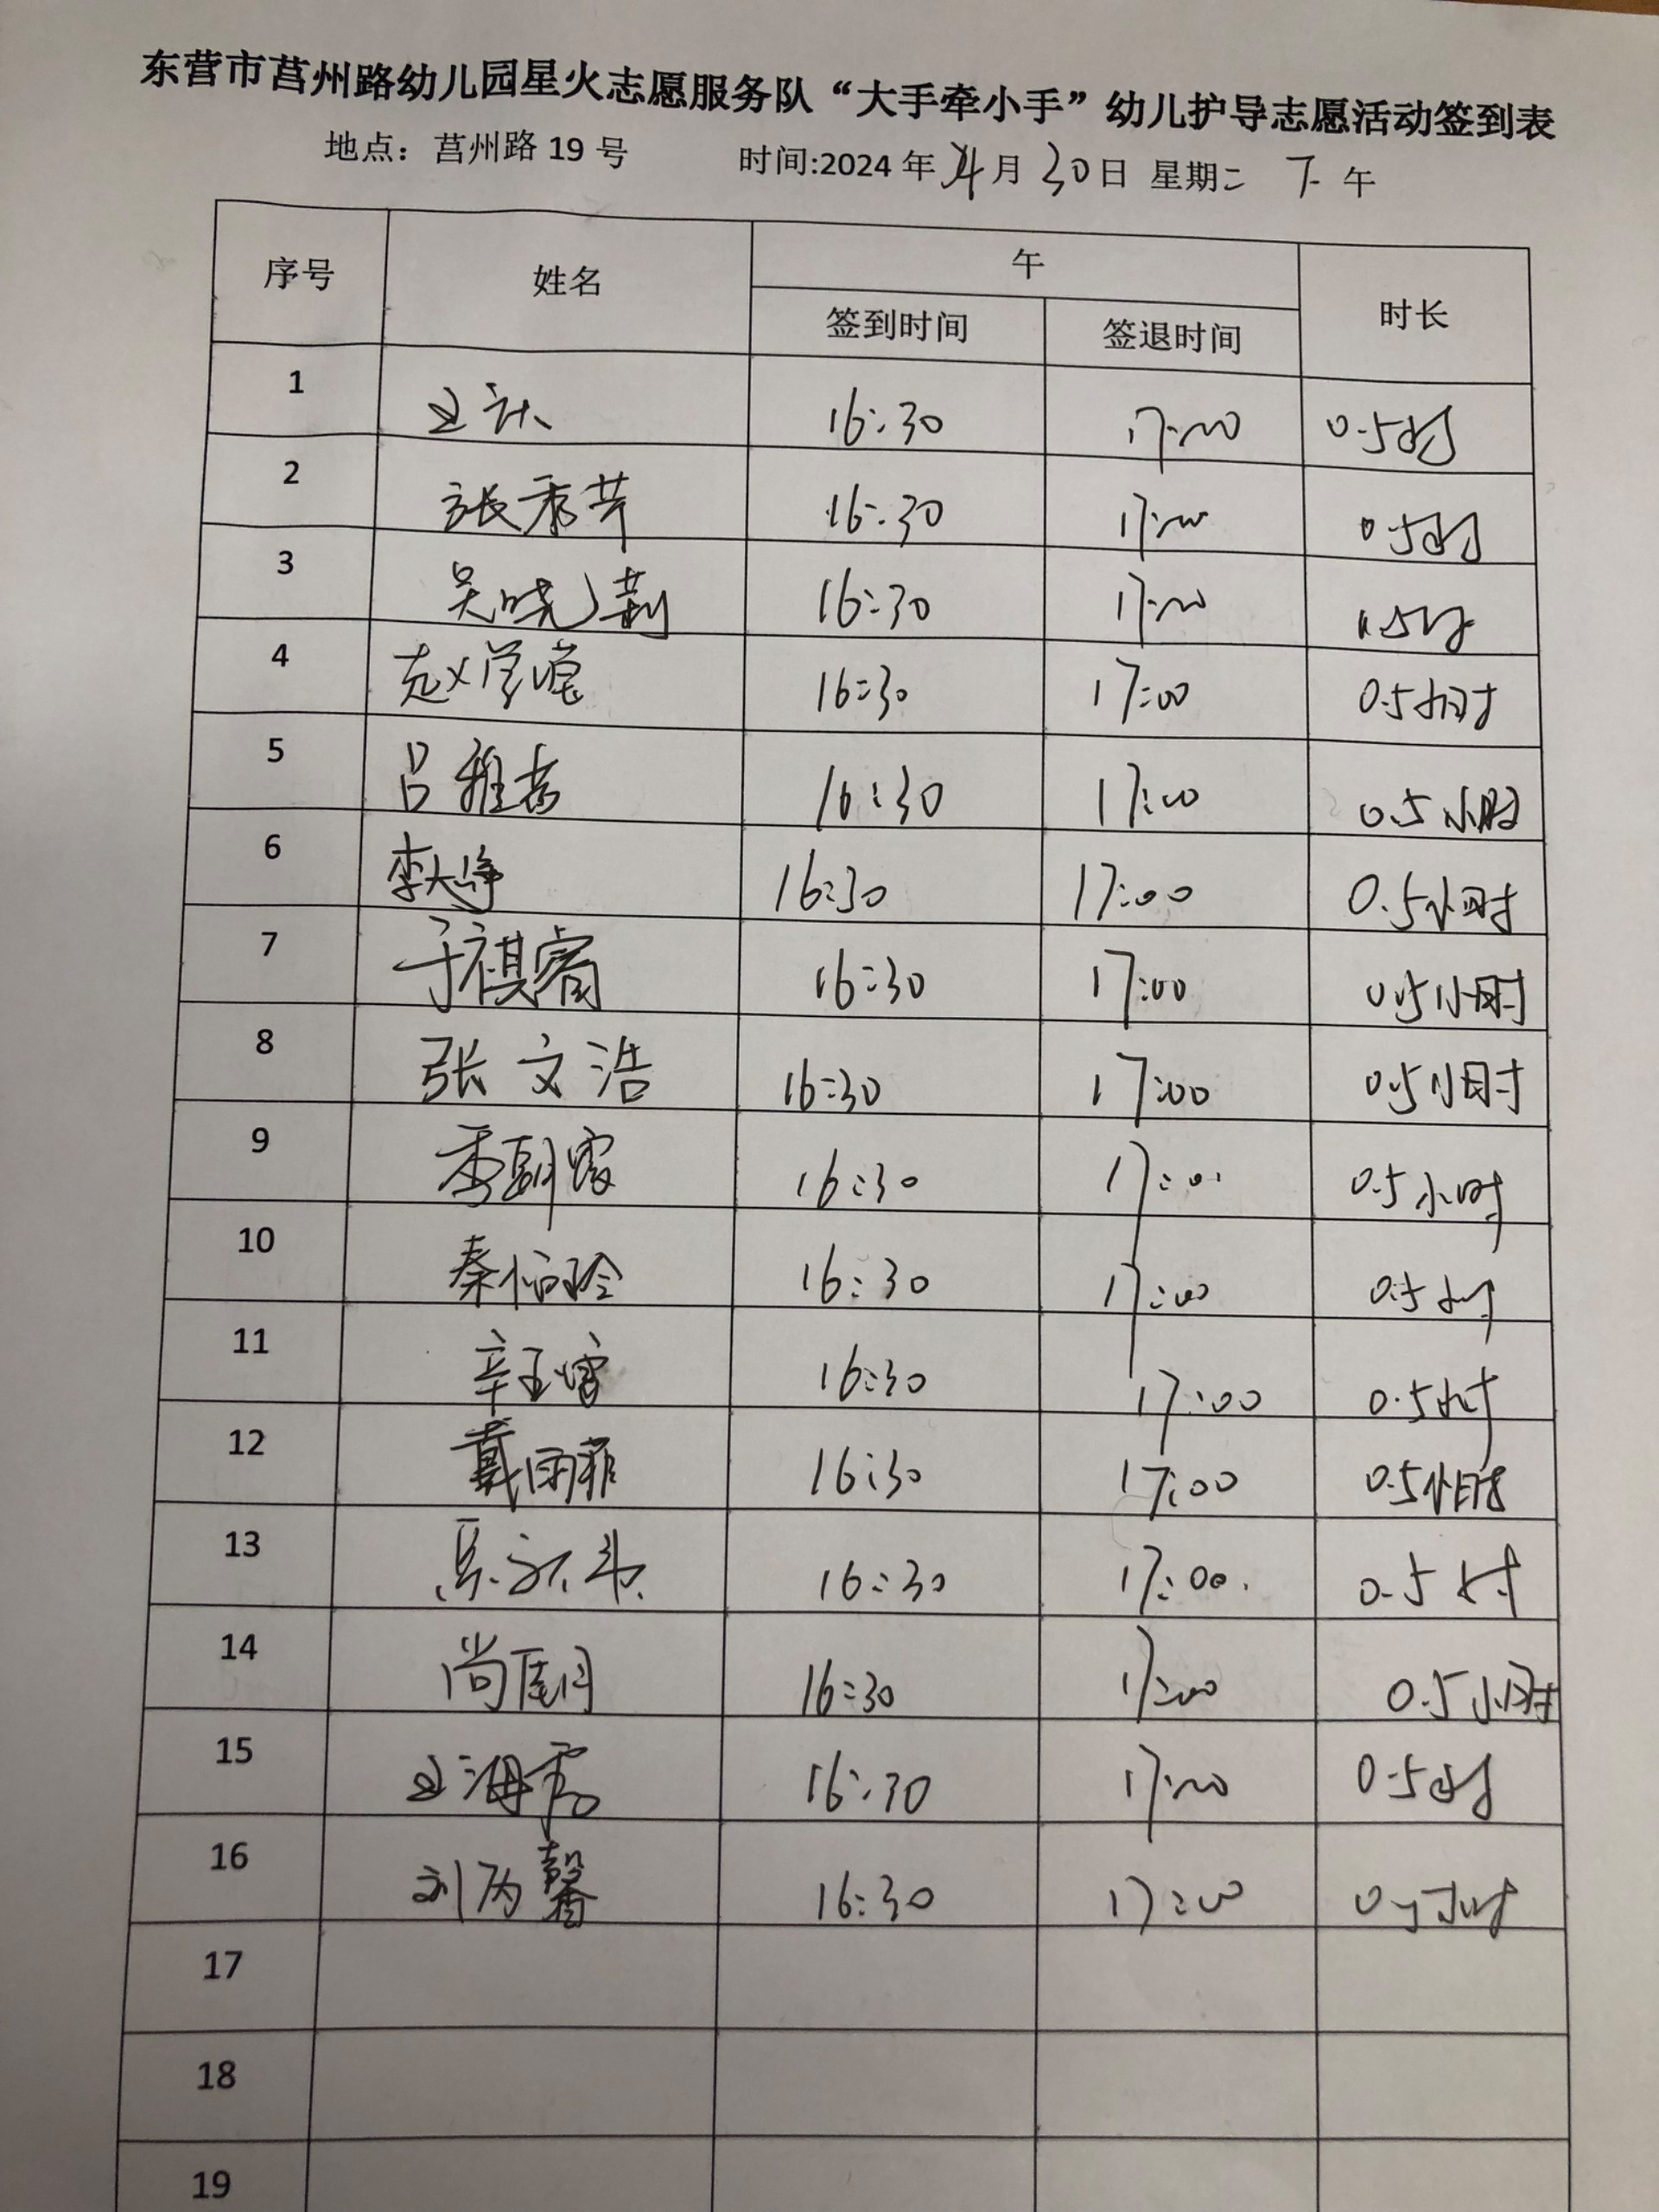 东营市莒州路幼儿园星火志愿服务队“大手牵小手”幼儿护导志愿活动签到表
地点：莒州路 19 号 时间:2024 年 4 月 30 日 星期二 下午
序号 姓名 午 时长
签到时间 签退时间
1 王 16:30 17:00 0.5小时
2 张秀芹 16:30 17:00 0.5小时
3 吴晓莉 16:30 17:00 0.5小时
4 赵 16:30 17:00 0.5小时
5 吕雅 16:30 17:00 0.5小时
6 李大峥 16:30 17:00 0.5小时
7 于祺睿 16:30 17:00 0.5小时
8 张文浩 16:30 17:00 0.5小时
9 16:30 17:00 0.5小时
10 秦 16:30 17:00 0.5小时
11 辛 16:30 17:00 0.5小时
12 戴雨菲 16:30 17:00 0.5小时
13 16:30 17:00 0.5小时
14 尚 16:30 17:00 0.5小时
15 王海 16:30 17:00 0.5小时
16 刘 馨 16:30 17:00 0.5小时
17
18
19